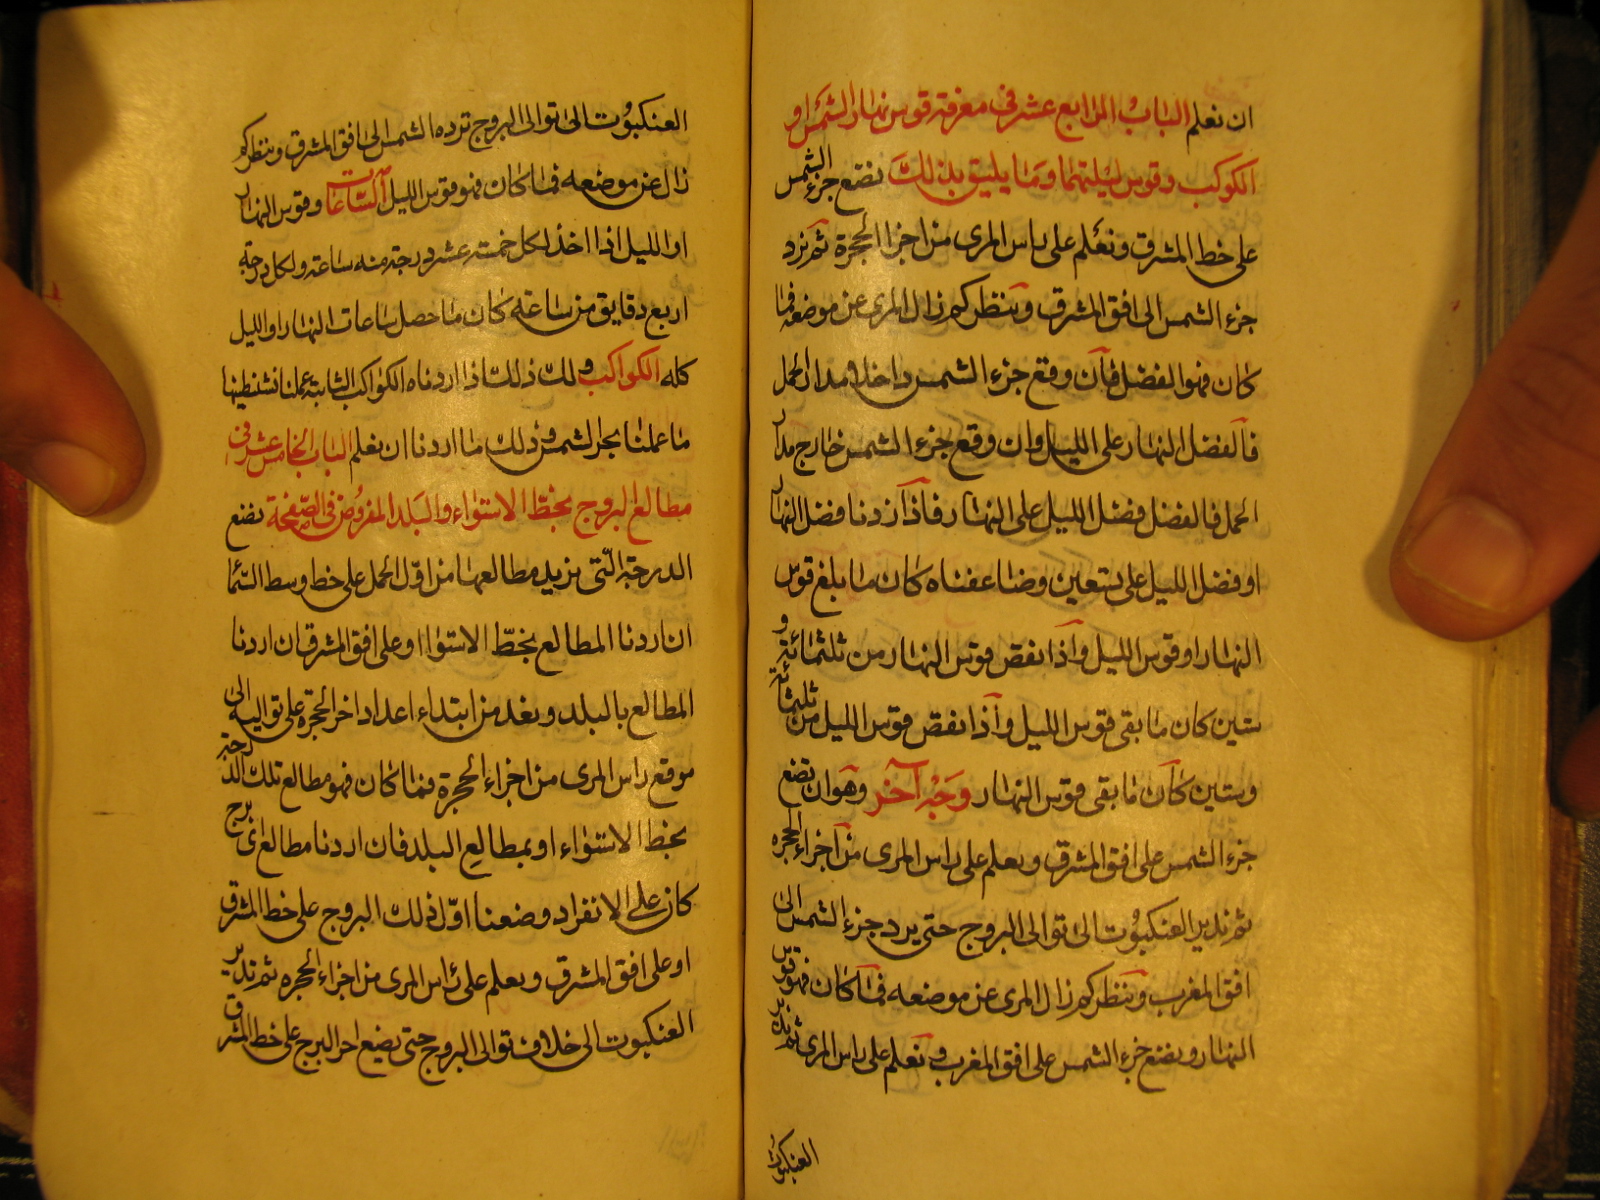 ان نعلم الباب الرابع عشر في معرفة قوس نهار الشمس او
الكوكب وقوس ليلتهما وما يليق بذلك نضع جزء الشمس
على خط المشرق ونعلم على راس المرى من اجزا الحجرة ثم نرد
جزء الشمس الى افق المشرق وننظر كم زال المرى عن موضعه فما
كان فهو الفضل فان وقع جزء الشمس داخلا مدار الحمل
فالفضل النهار على الليل وان وقع جزء الشمس خارج مدار
الحمل فالفضل فضل الليل على النهار فاذا زدنا فضل النهار
او فضل الليل على تسعين وضاعفناه كان ما بلغ قوس
النهار او قوس الليل واذا نقص قوس النهار من ثلثمائة و
ستين كان ما بقى قوس الليل واذا نقص قوس الليل من ثلثمائة
وستين كان ما بقى قوس النهار وجه آخر وهو ان نضع
جزء الشمس على افق المشرق ونعلم على راس المرى من اجزاء الحجره
ثم ندير العنكبوت الى توالى البروج حتى يرد جزء الشمس الى
افق المغرب وننظر كم زال المرى عن موضعه فما كان فهو قوس
النهار ونضع جزء الشمس على افق المغرب ونعلم على راس المرى ثم ندير
العنكبوت
العنكبوت الى توالى البروج ترده الشمس الى افق المشرق وننظر كم
زال عن موضعه فما كان فهو قوس الليل الساعات وقوس النهار
او الليل اذا اخذ لكل خمسة عشر درجة منه ساعة ولكل درجة
اربع دقايق من ساعة كان ما حصل ساعات النهار او الليل
كله الكواكب ولك ذلك اذا اردناه الكواكب الثابتة عملنا بشظيتها
ما عملنا بجزء الشمس وذلك ما اردنا ان نعلم الباب الخامس عشر في
مطالع البروج بخط الاستواء والبلد المفروض في الصفحة نضع
الدرجة التي نريد مطالعها من اول الحمل على خط وسط السما
ان اردنا المطالع بخط الاستوا او على افق المشرق ان اردنا
المطالع بالبلد ونعد من ابتداء اعداد اخر الحجرة على تواليه الى
موقع راس المرى من اجزاء الحجرة فما كان فهو مطالع تلك الدرجة
بخط الاستواء او بمطالع البلد فان اردنا مطالع اى برج
كان على الانفراد وضعنا اول ذلك البروج على خط المشرق
او على افق المشرق ونعلم على راس المرى من اجزاء الحجره ثم ندير
العنكبوت الى خلاف توالى البروج حتى يضع اخر البرج على خط المشرق